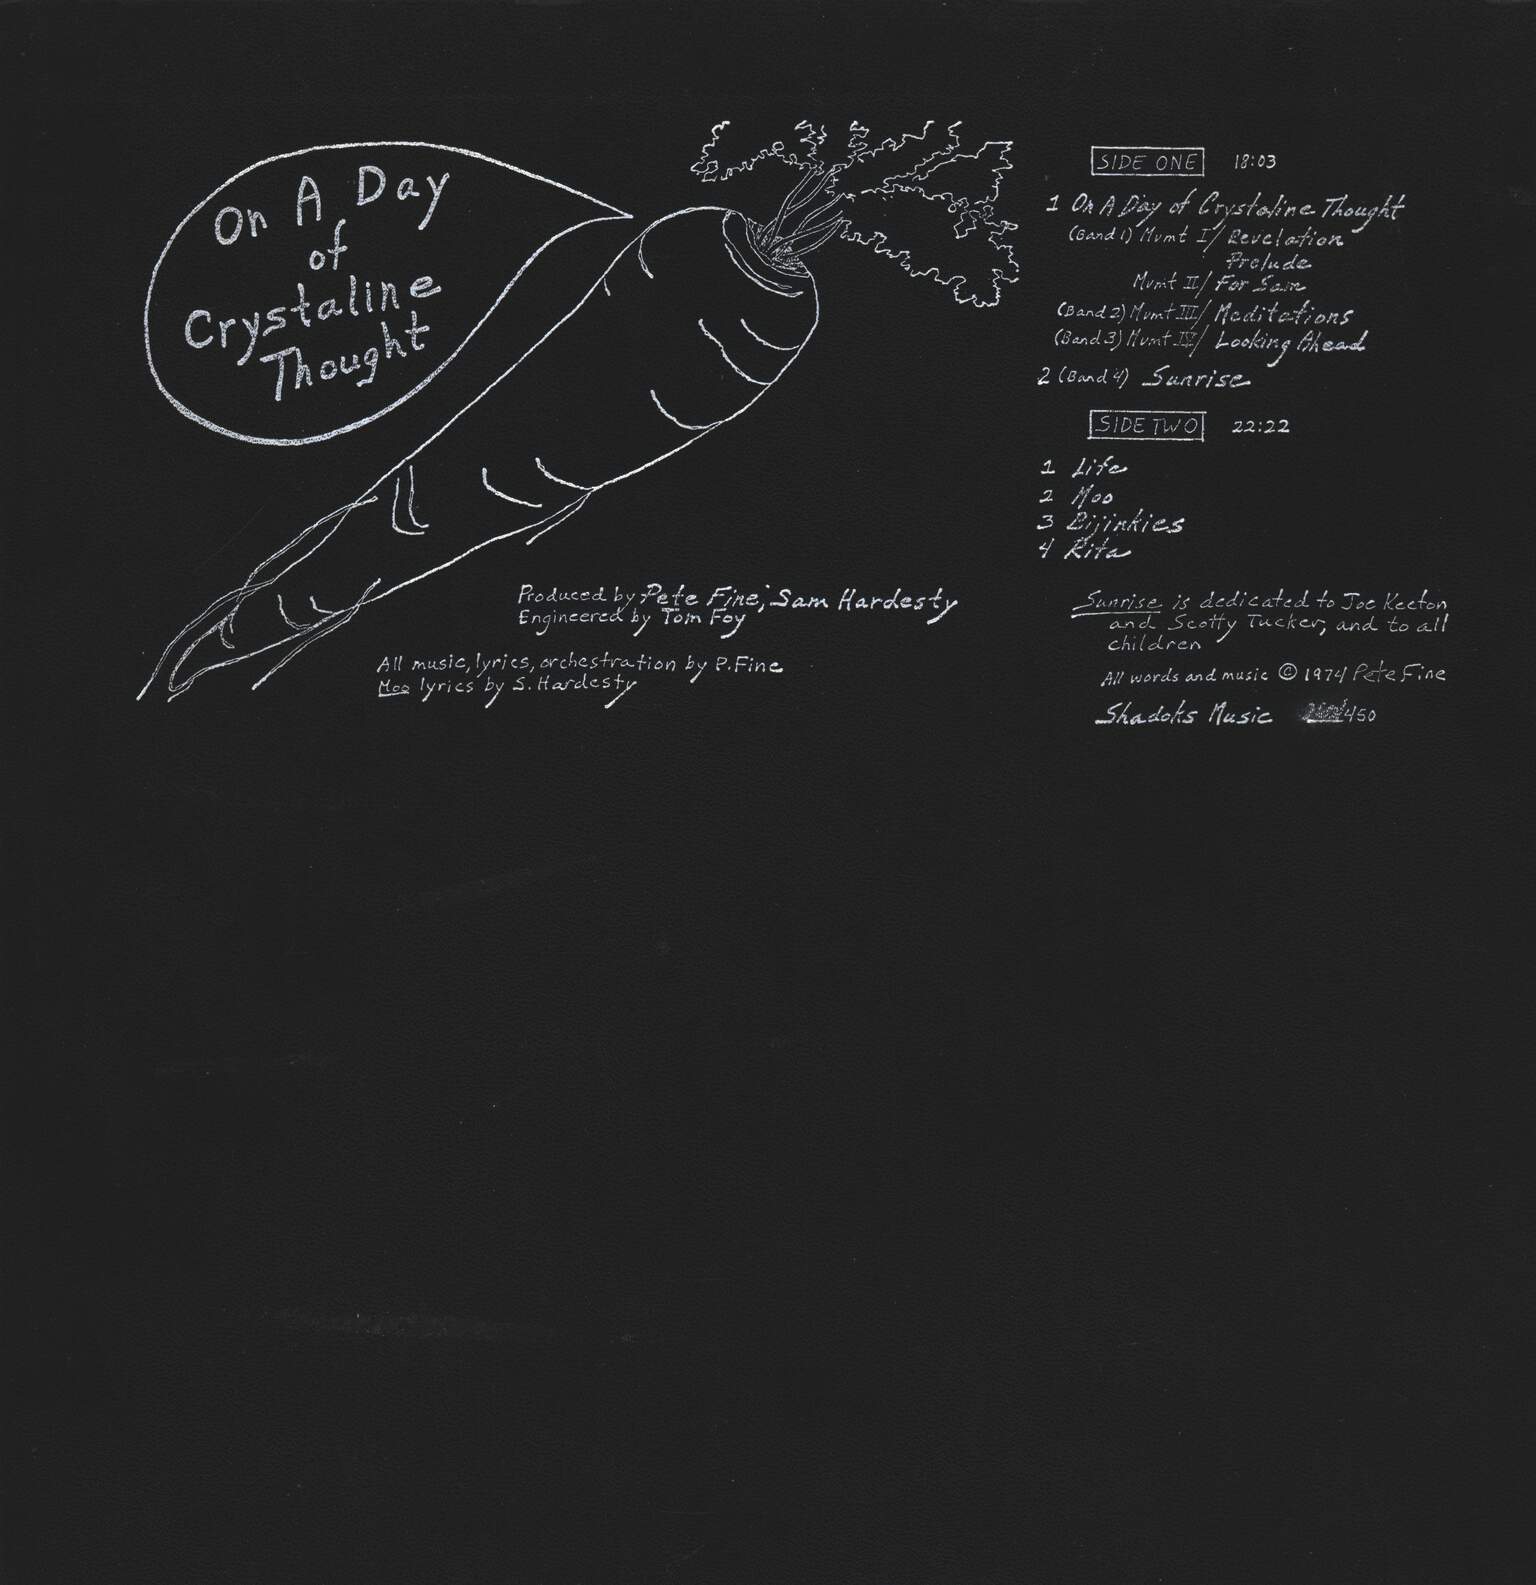 On A Day
of
Crystaline
Thought
SIDE ONE 18:03
1 On A Day of Crystaline Thought
(Band 1) Mvmt I/ Revelation
Prelude
Mvmt II/ For Sam
(Band 2) Mvmt III/ Meditations
(Band 3) Mvmt IV/ Looking Ahead
2 (Band 4) Sunrise
SIDE TWO 22:22
1 Life
2 Moo
3 Bijinkies
4 Rita
Produced by Pete Fine; Sam Hardesty
Engineered by Tom Foy
All music, lyrics, orchestration by P. Fine
Moo lyrics by S. Hardesty
Sunrise is dedicated to Joe Keeton
and Scotty Tucker, and to all
children
All words and music © 1974 Pete Fine
Shadoks Music 450